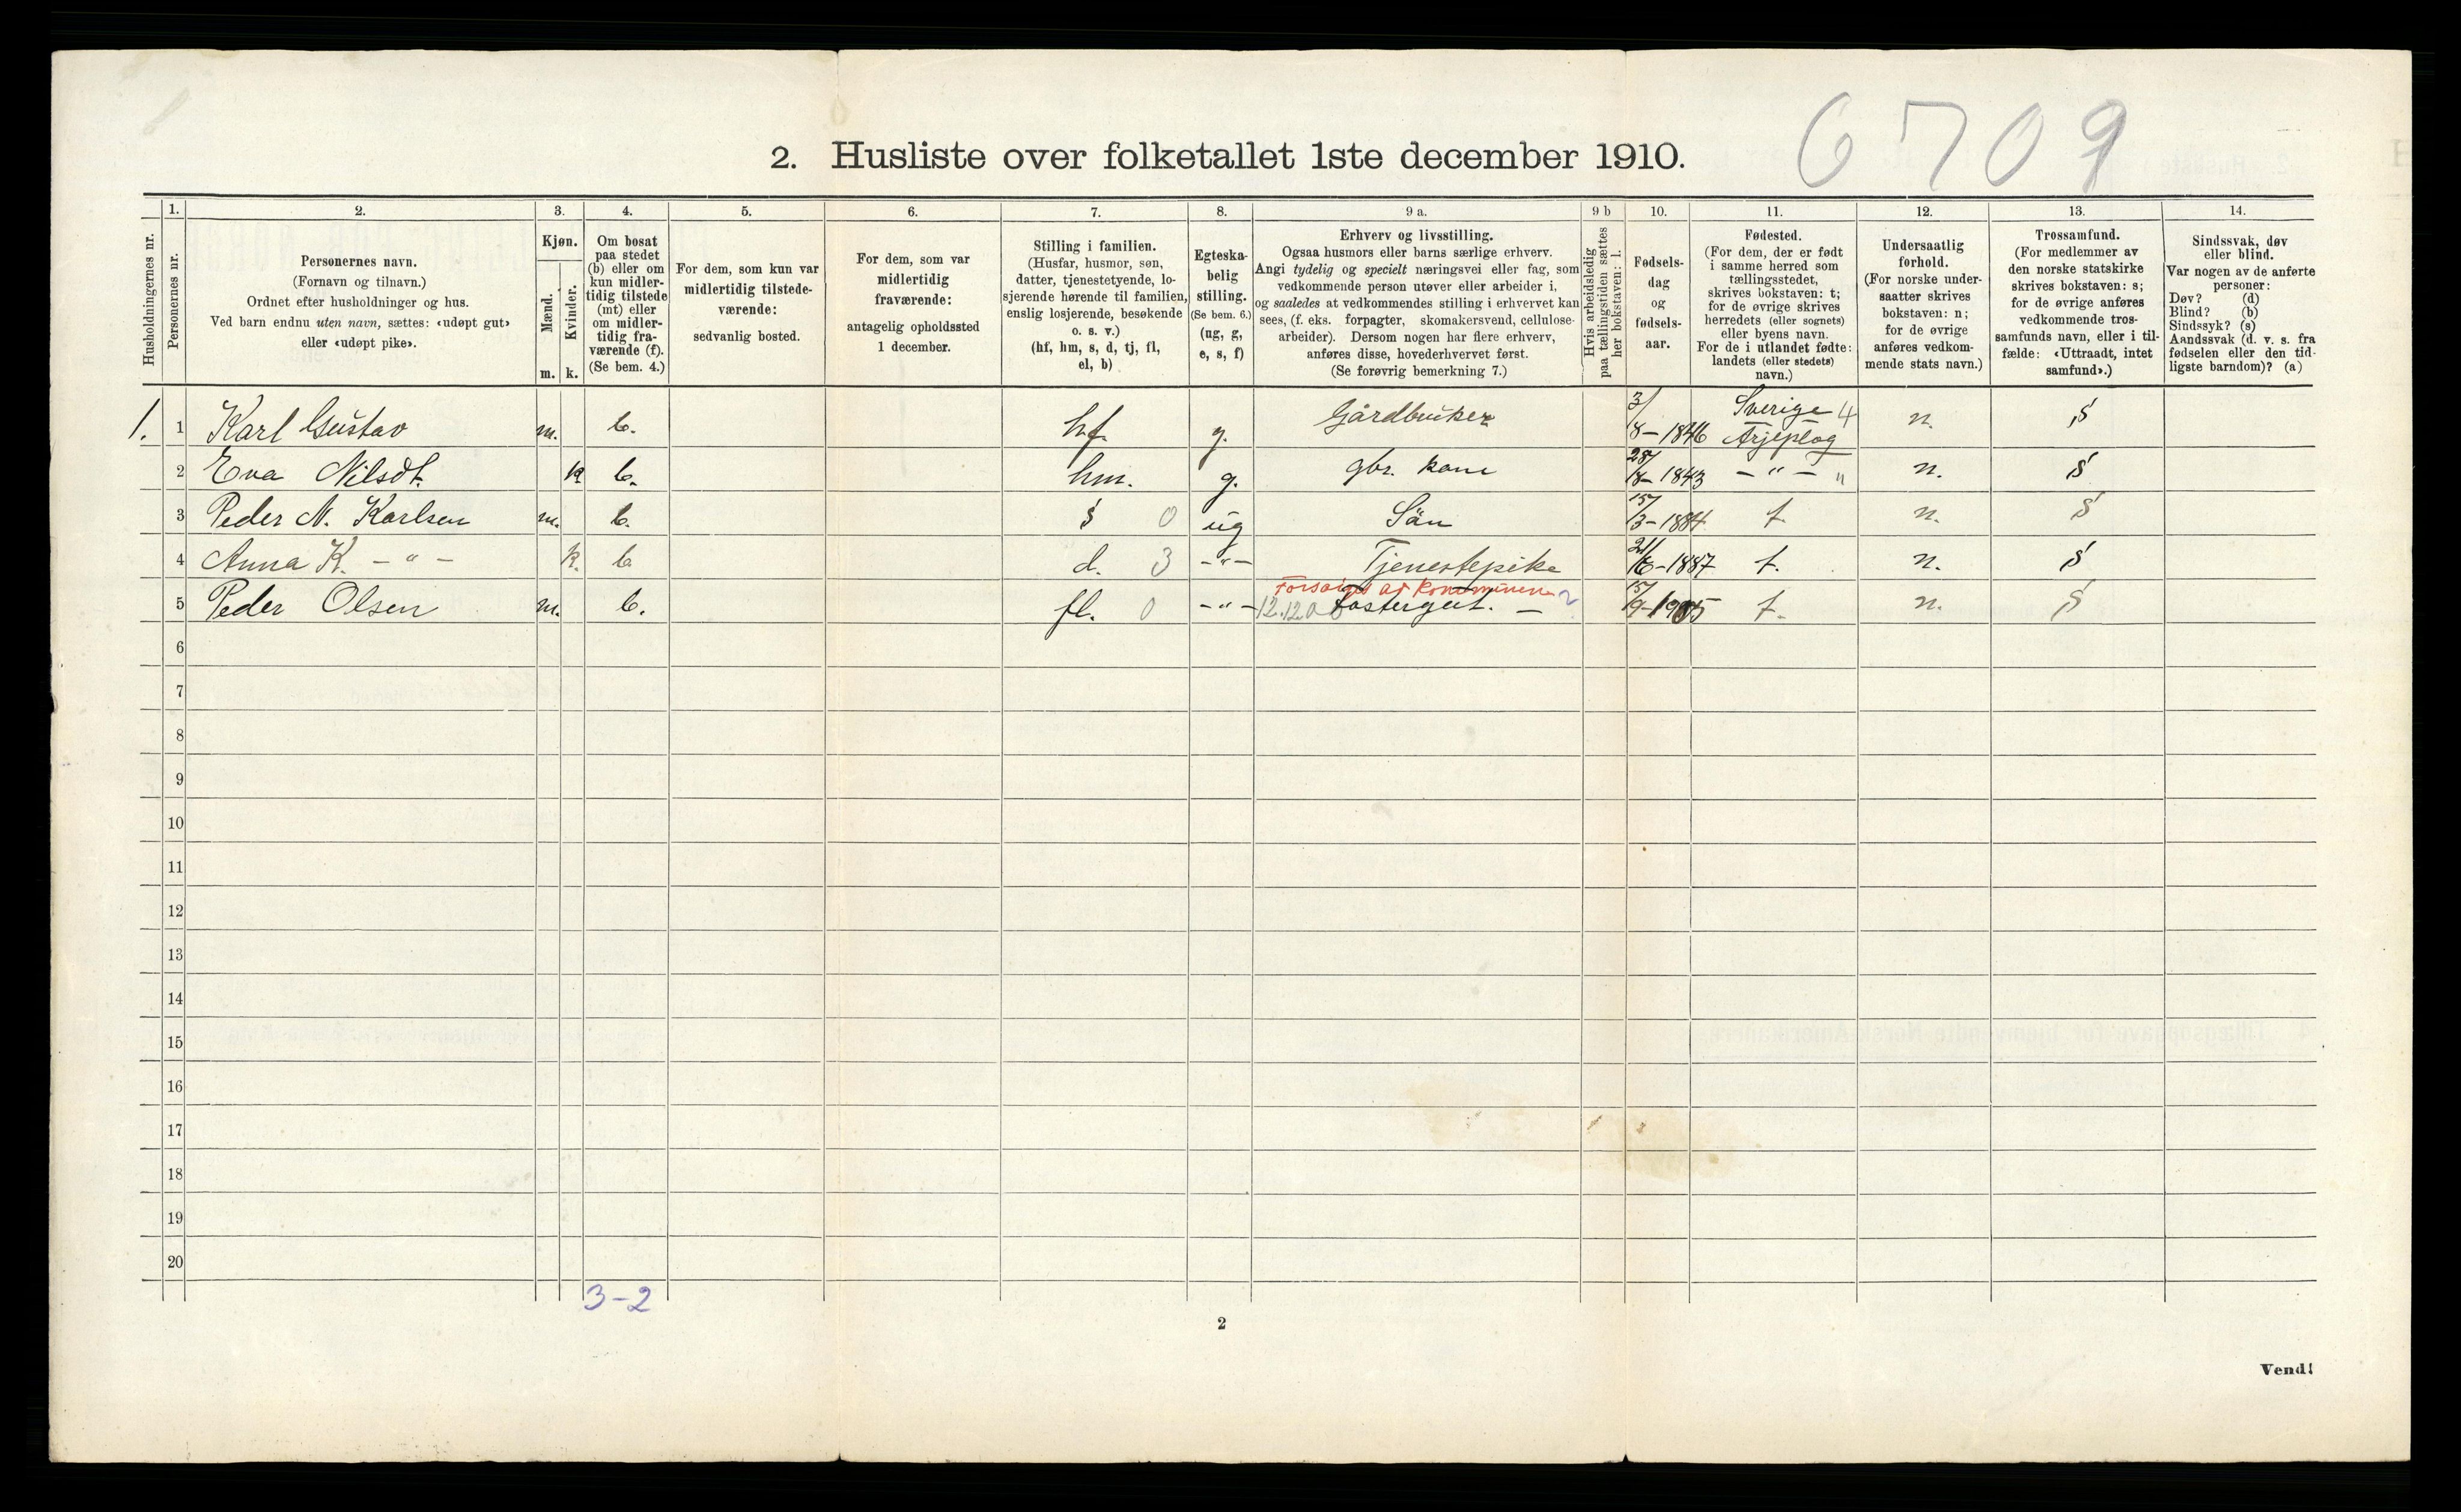 6709
2. Husliste over folketallet 1ste december 1910.
Husholdningernes nr.
1.
Personernes nr.
2.
Personernes navn.
(Fornavn og tilnavn.)
Ordnet efter husholdninger og hus.
Ved barn endnu uten navn, sættes: «udøpt gut»
eller «udøpt pike».
3.
Kjøn.
Mænd.
Kvinder.
m. k.
4.
Om bosat
paa stedet
(b) eller om
kun midler-
tidig tilstede
(mt) eller
om midler-
tidig fra-
værende (f).
(Se bem. 4.)
5.
For dem, som kun var
midlertidig tilstede-
værende:
sedvanlig bosted.
6.
For dem, som var
midlertidig
fraværende:
antagelig opholdssted
1 december.
7.
Stilling i familien.
(Husfar, husmor, søn,
datter, tjenestetyende, lo-
sjerende hørende til familien,
enslig losjerende, besøkende
o. s. v.)
(hf, hm, s, d, tj, fl,
el, b)
8.
Egteska-
belig
stilling.
(Se bem. 6.)
(ug, g,
e, s, f)
9 a.
Erhverv og livsstilling.
Ogsaa husmors eller barns særlige erhverv.
Angi tydelig og specielt næringsvei eller fag, som
vedkommende person utøver eller arbeider i,
og saaledes at vedkommendes stilling i erhvervet kan
sees, (f. eks. forpagter, skomakersvend, cellulose-
arbeider). Dersom nogen har flere erhverv,
anføres disse, hovederhvervet først.
(Se forøvrig bemerkning 7.)
9 b
Hvis arbeidsledig
paa tællingstiden sættes
her bokstaven: l.
10.
Fødsels-
dag
og
fødsels-
aar.
11.
Fødested.
(For dem, der er født
i samme herred som
tællingsstedet,
skrives bokstaven: t;
for de øvrige skrives
herredets (eller sognets)
eller byens navn.
For de i utlandet fødte:
landets (eller stedets)
navn.)
12.
Undersaatlig
forhold.
(For norske under-
saatter skrives
bokstaven: n;
for de øvrige
anføres vedkom-
mende stats navn.)
13.
Trossamfund.
(For medlemmer av
den norske statskirke
skrives bokstaven: s;
for de øvrige anføres
vedkommende tros-
samfunds navn, eller i til-
fælde: «Uttraadt, intet
samfund».)
14.
Sindssvak, døv
eller blind.
Var nogen av de anførte
personer:
Døv? (d)
Blind? (b)
Sindssyk? (s)
Aandssvak (d. v. s. fra
fødselen eller den tid-
ligste barndom)? (a)
1. 1 Karl Gustav m. b. hf. g. Gårdbruker 3/8-1846 Sverige 4 Arjeplog n. s
2 Eva Nilsdt. k b. hm. g. gbr. kone 28/8-1843 -"- " n. s
3 Peder N. Karlsen m. b. s 0 ug Sön 15/3-1884 t. n. s
4 Anna K. -"- k. b d. 3 -"- Tjenestepike 21/6-1887 t. n. s
Forsørges af Kommunen
5 Peder Olsen m. b. fl. 0 -"- 12.12.00 Fostergut. - 15/9-1905 t. n. s
6
7
8
9
10
11
12
13
14
15
16
17
18
19
20
3-2
2
Vend!